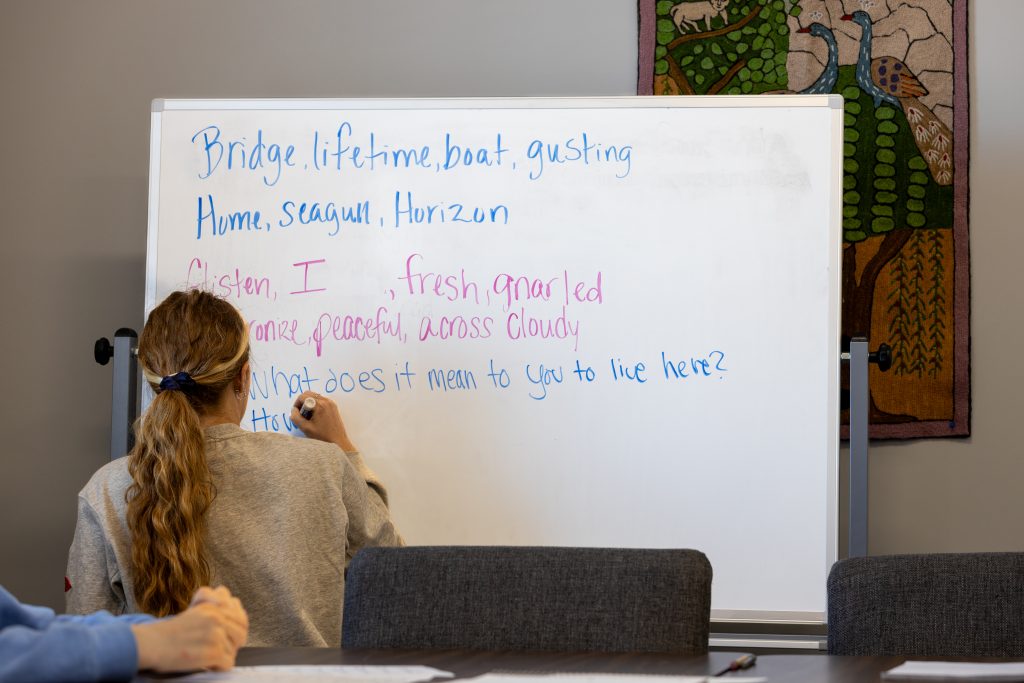 Bridge, lifetime, boat, gusting
Home, seagull, Horizon
Glisten, I , fresh, gnarled
peaceful, across cloudy
What does it mean to you to live here?